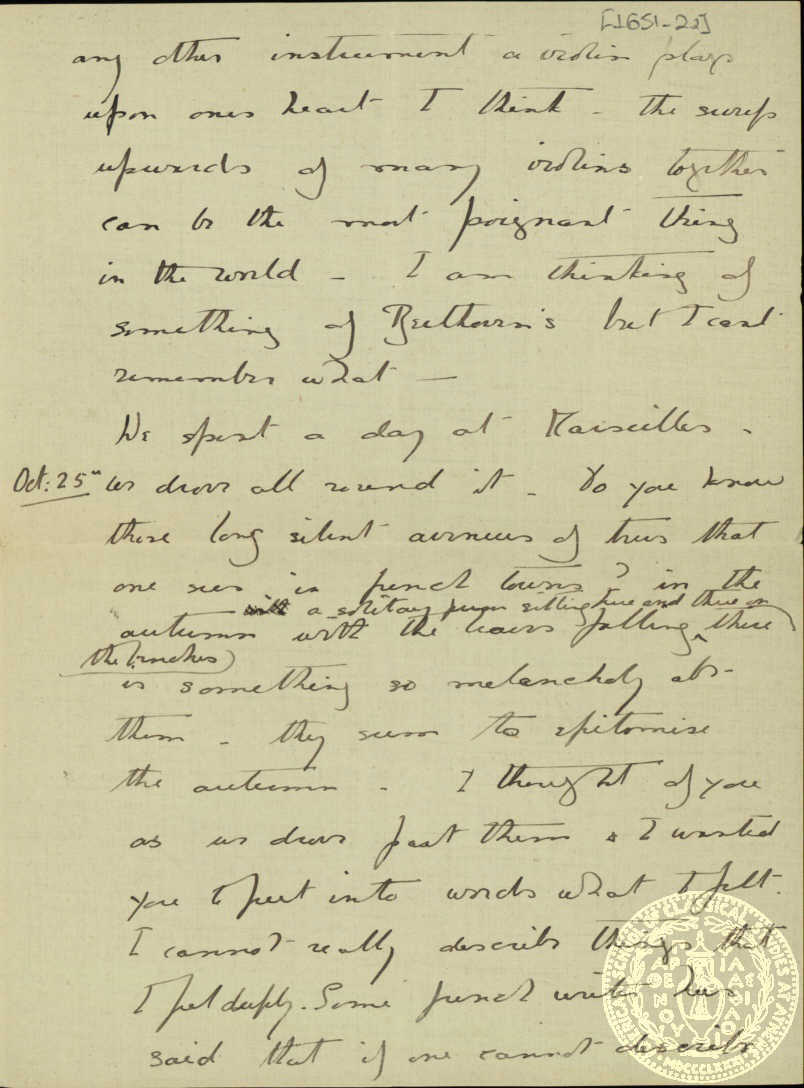 [1651-22]
any other instrument a violin plays
upon ones heart I think - the sweep
upwards of many violins together
can be the most poignant thing
in the world - I am thinking of
something of Beethoven's but I cant
remember what —
We spent a day at Marseilles -
Oct: 25th we drove all round it - Do you know
those long silent avenues of trees that
one sees in french towns? in the
with a solitary person sitting here and there on
autumn with the leaves falling there
the benches
is something so melancholy abt-
them - they seem to epitomise
the autumn - I thought of you
as we drove past them & I wanted
you to put into words what I felt.
I cannot really describe things that
I feel deeply. Some french writer has
said that if one cannot describe